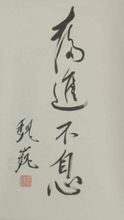 奮進不息
魏巍